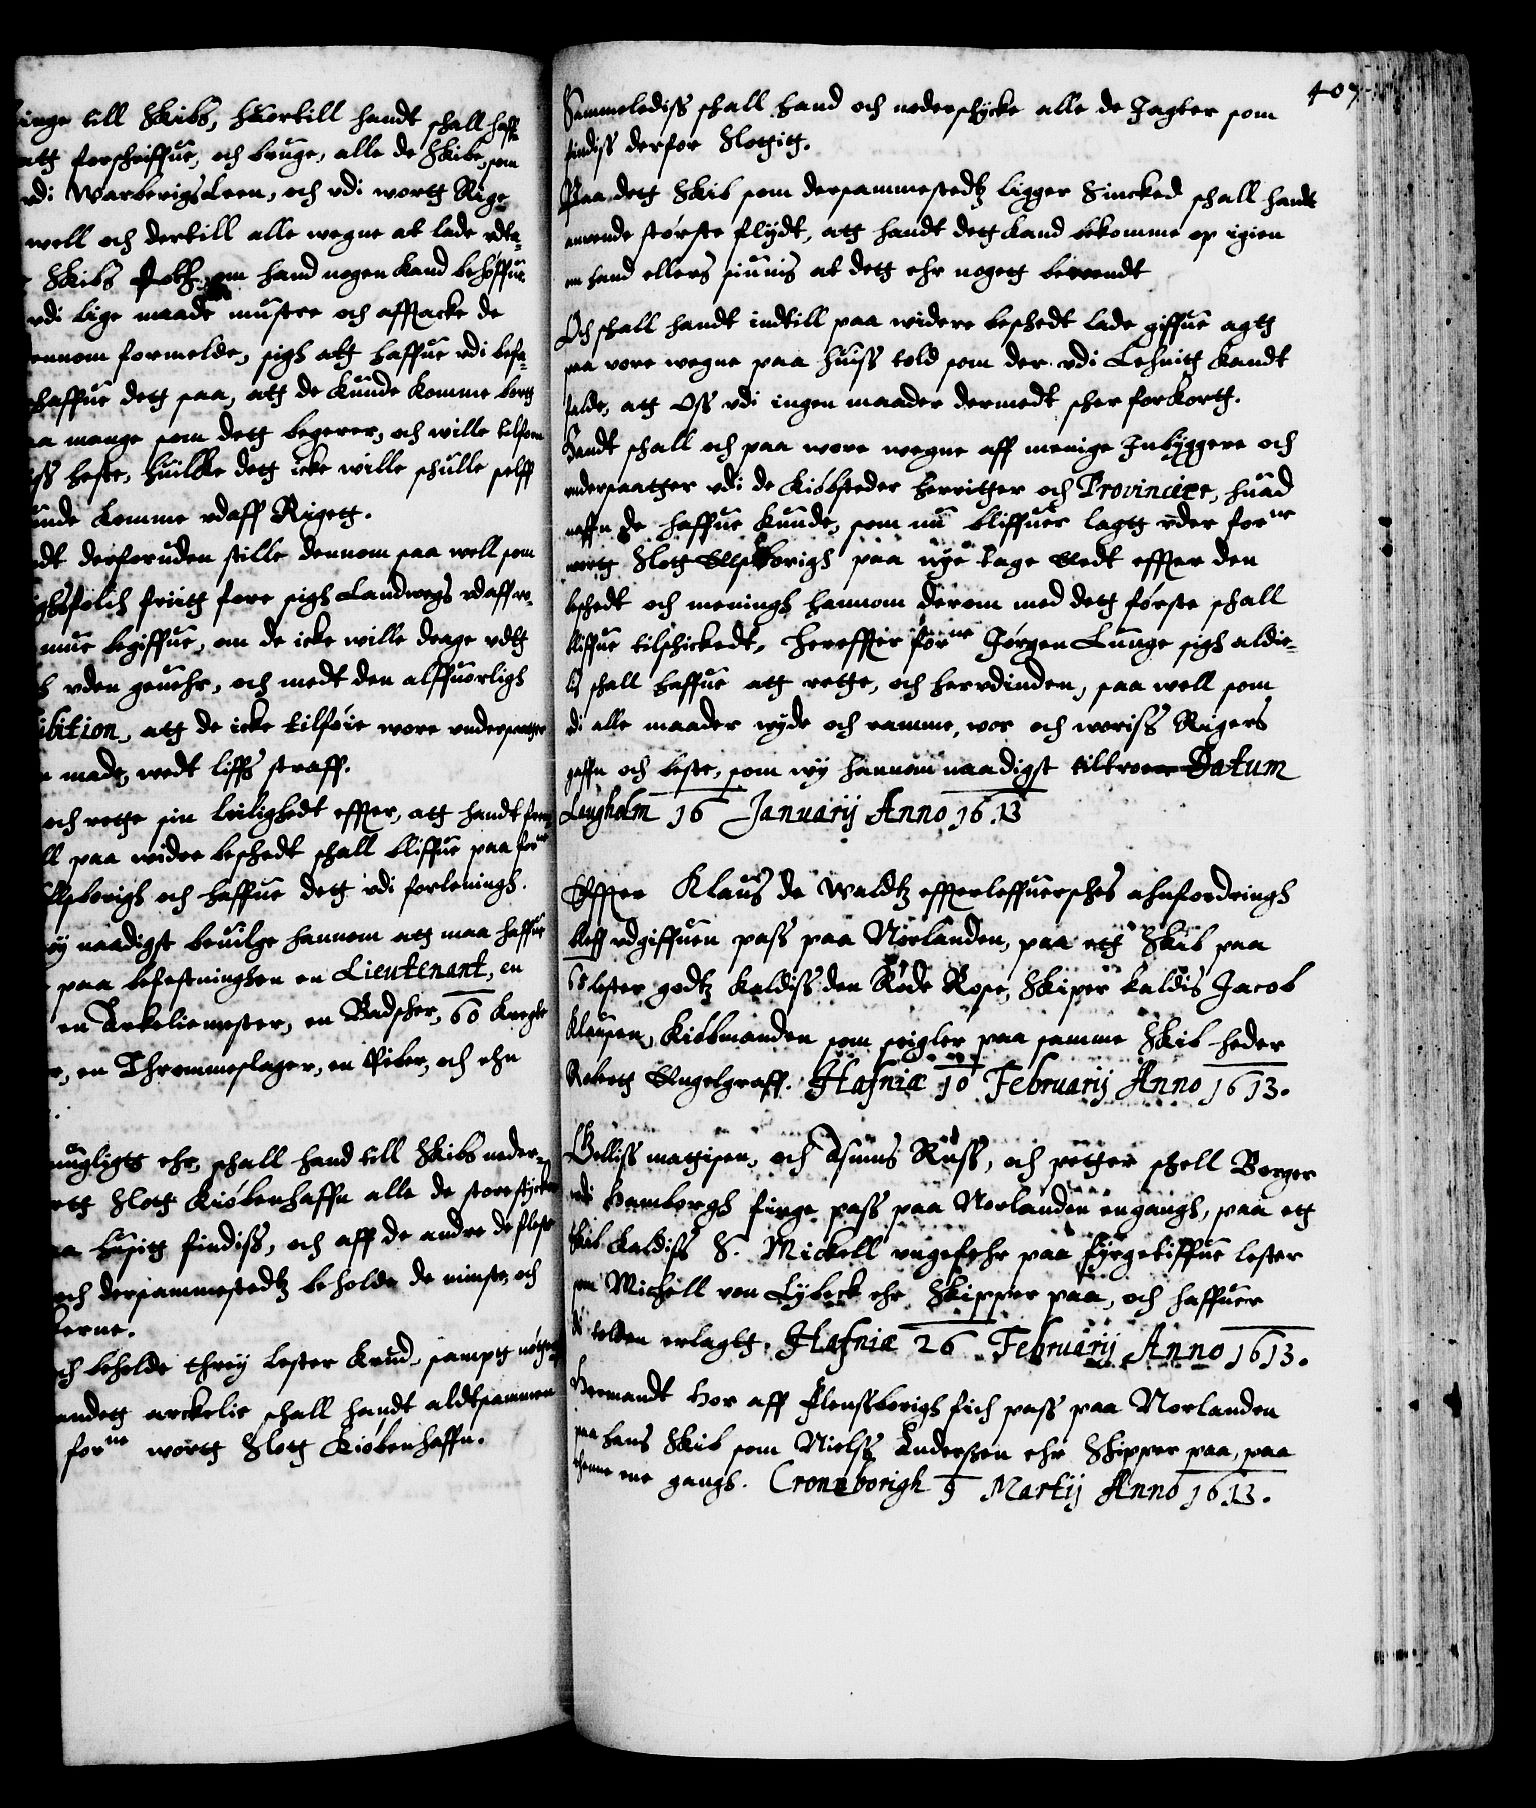 inge till Skibs, hüortill handt schall haffe
att forschriffue, och bruge, alle de Skibe, som
vdi Warberigs Leen, och vdi wortt Rige
well och dertill alle wegne at lade vdta-
Skibs folk, om hand nogen kand behöffue
vdi lige maade müstre och afftacke de
ennom formelde, sigh att haffue vdi befa-
haffue dett saa, att de kunde komme bortt
saa mange som dett begerer, och wille tilforn
ss heste, huilcke dett icke wille schulle selff
unde komme vdaff Rigett.
dt derforuden stille dennom saa well som
ighsfolch friitt fore sigh Landwegs vdaff vo-
mue begiffue, om de icke wille drage vdtt
h vden geuehr, och medt den alffuorligh
ibition, att de icke tilföie wore vndersaatter
made, wedt liffs straff.
och rette sin leilighedt effter, att handt frem
ll paa widre beschedt schall bliffue paa forne
lssborigh och haffue dett vdi forleningh.
wy naadigst beuilge hannom att maa haffue
paa befestninghen en Lieutenant, en
en Arkeliemester, en Badscher, 60 knegte
r, en Thrommeslager, en Piber, och ehn
mügligtt ehr, schall hand till Skibs neder-
ortt Slott Kiöbenhaffn alle de storestycker
paa husitt findiss, och aff de andre de fleste
och dersammestedtz beholde de minste och
kerne.
och beholde threy lester krud, sampt nötter
andett arckelie schall handt aldtsammen
forne wortt Slott Kiöbenhaffn.
407
Sammelediss schall hand och nederschicke alle de Jagter som
findiss derfor Slottitt.
Paa dett Skib som dersammestedtz ligger Sincked schall handt
anvende störste flydt, att handt dett kand bekomme op igien
om hand ellers siunis at dett ehr nogett bewendt
Och schall handt indtill paa widere beschedt lade giffue agtt
paa vore wegne paa huiss told som der vdi Lehnitt kandt
falde, att Oss vdi ingen maader dermedt scher forkortt.
Handt schall och paa wore wegne aff menige Inbyggere och
vndersaatter vdi de Kiöbsteder herritter och Provincier, huad
naffn de haffue kunde, som nu bliffuer lagtt vnder forne
wortt Slott Elssborigh paa nye tage Eedt effter den
beschedt och meningh hannom derom med dett förste schall
bliffue tilschickedt, hereffter forne Jörgen Lunge sigh aldie-
lis schall haffue att rette, och herudinden, saa well som
vdi alle maader wyde och ramme, vor och voriss Rigers
gaffn och beste, som wy hannom naadigst tiltroer Datum
Laugholm 16 Januarij Anno 1613
Effter Klaus de Waldtz effterleffuersches ahnfordringh
bleff vdgiffuen pass paa Norlanden, paa ett Skib paa
68 lester godtz kaldiss den Röde Rose, Skiper kaldis Jacob
Klausen, Kiöbmanden som seigler paa samme Skib heder
Robert Engelgraff. Hafniæ 10 Februarij Anno 1613.
Gelliss mattisen, och Asmus Russ, och petter schell Borger
vdi Hamborgh finge pass paa Norlanden engangh, paa ett
Skib kaldiss S. Mickell vngefehr paa fyrgetiffue lester
som Michell von Lybeck ehr Skipper paa, och haffuer
di tolden erlagtt. Hafniæ 26 Februarij Anno 1613.
Hermandt Hor aff Flenssborigh fich pass paa Norlanden
paa hans Skib som Nielss Anderssen ehr Skipper paa, paa
thenne ene gangh. Cronneborigh 9 Martij Anno 1613.